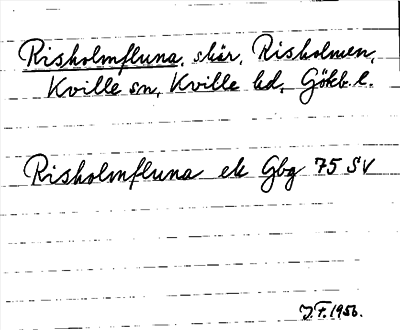 Risholmfluna, skär, Risholmen,
Kville sn, Kville hd, Gökb. l.
Risholmfluna ek Gbg 75 SV
J.F. 1956.